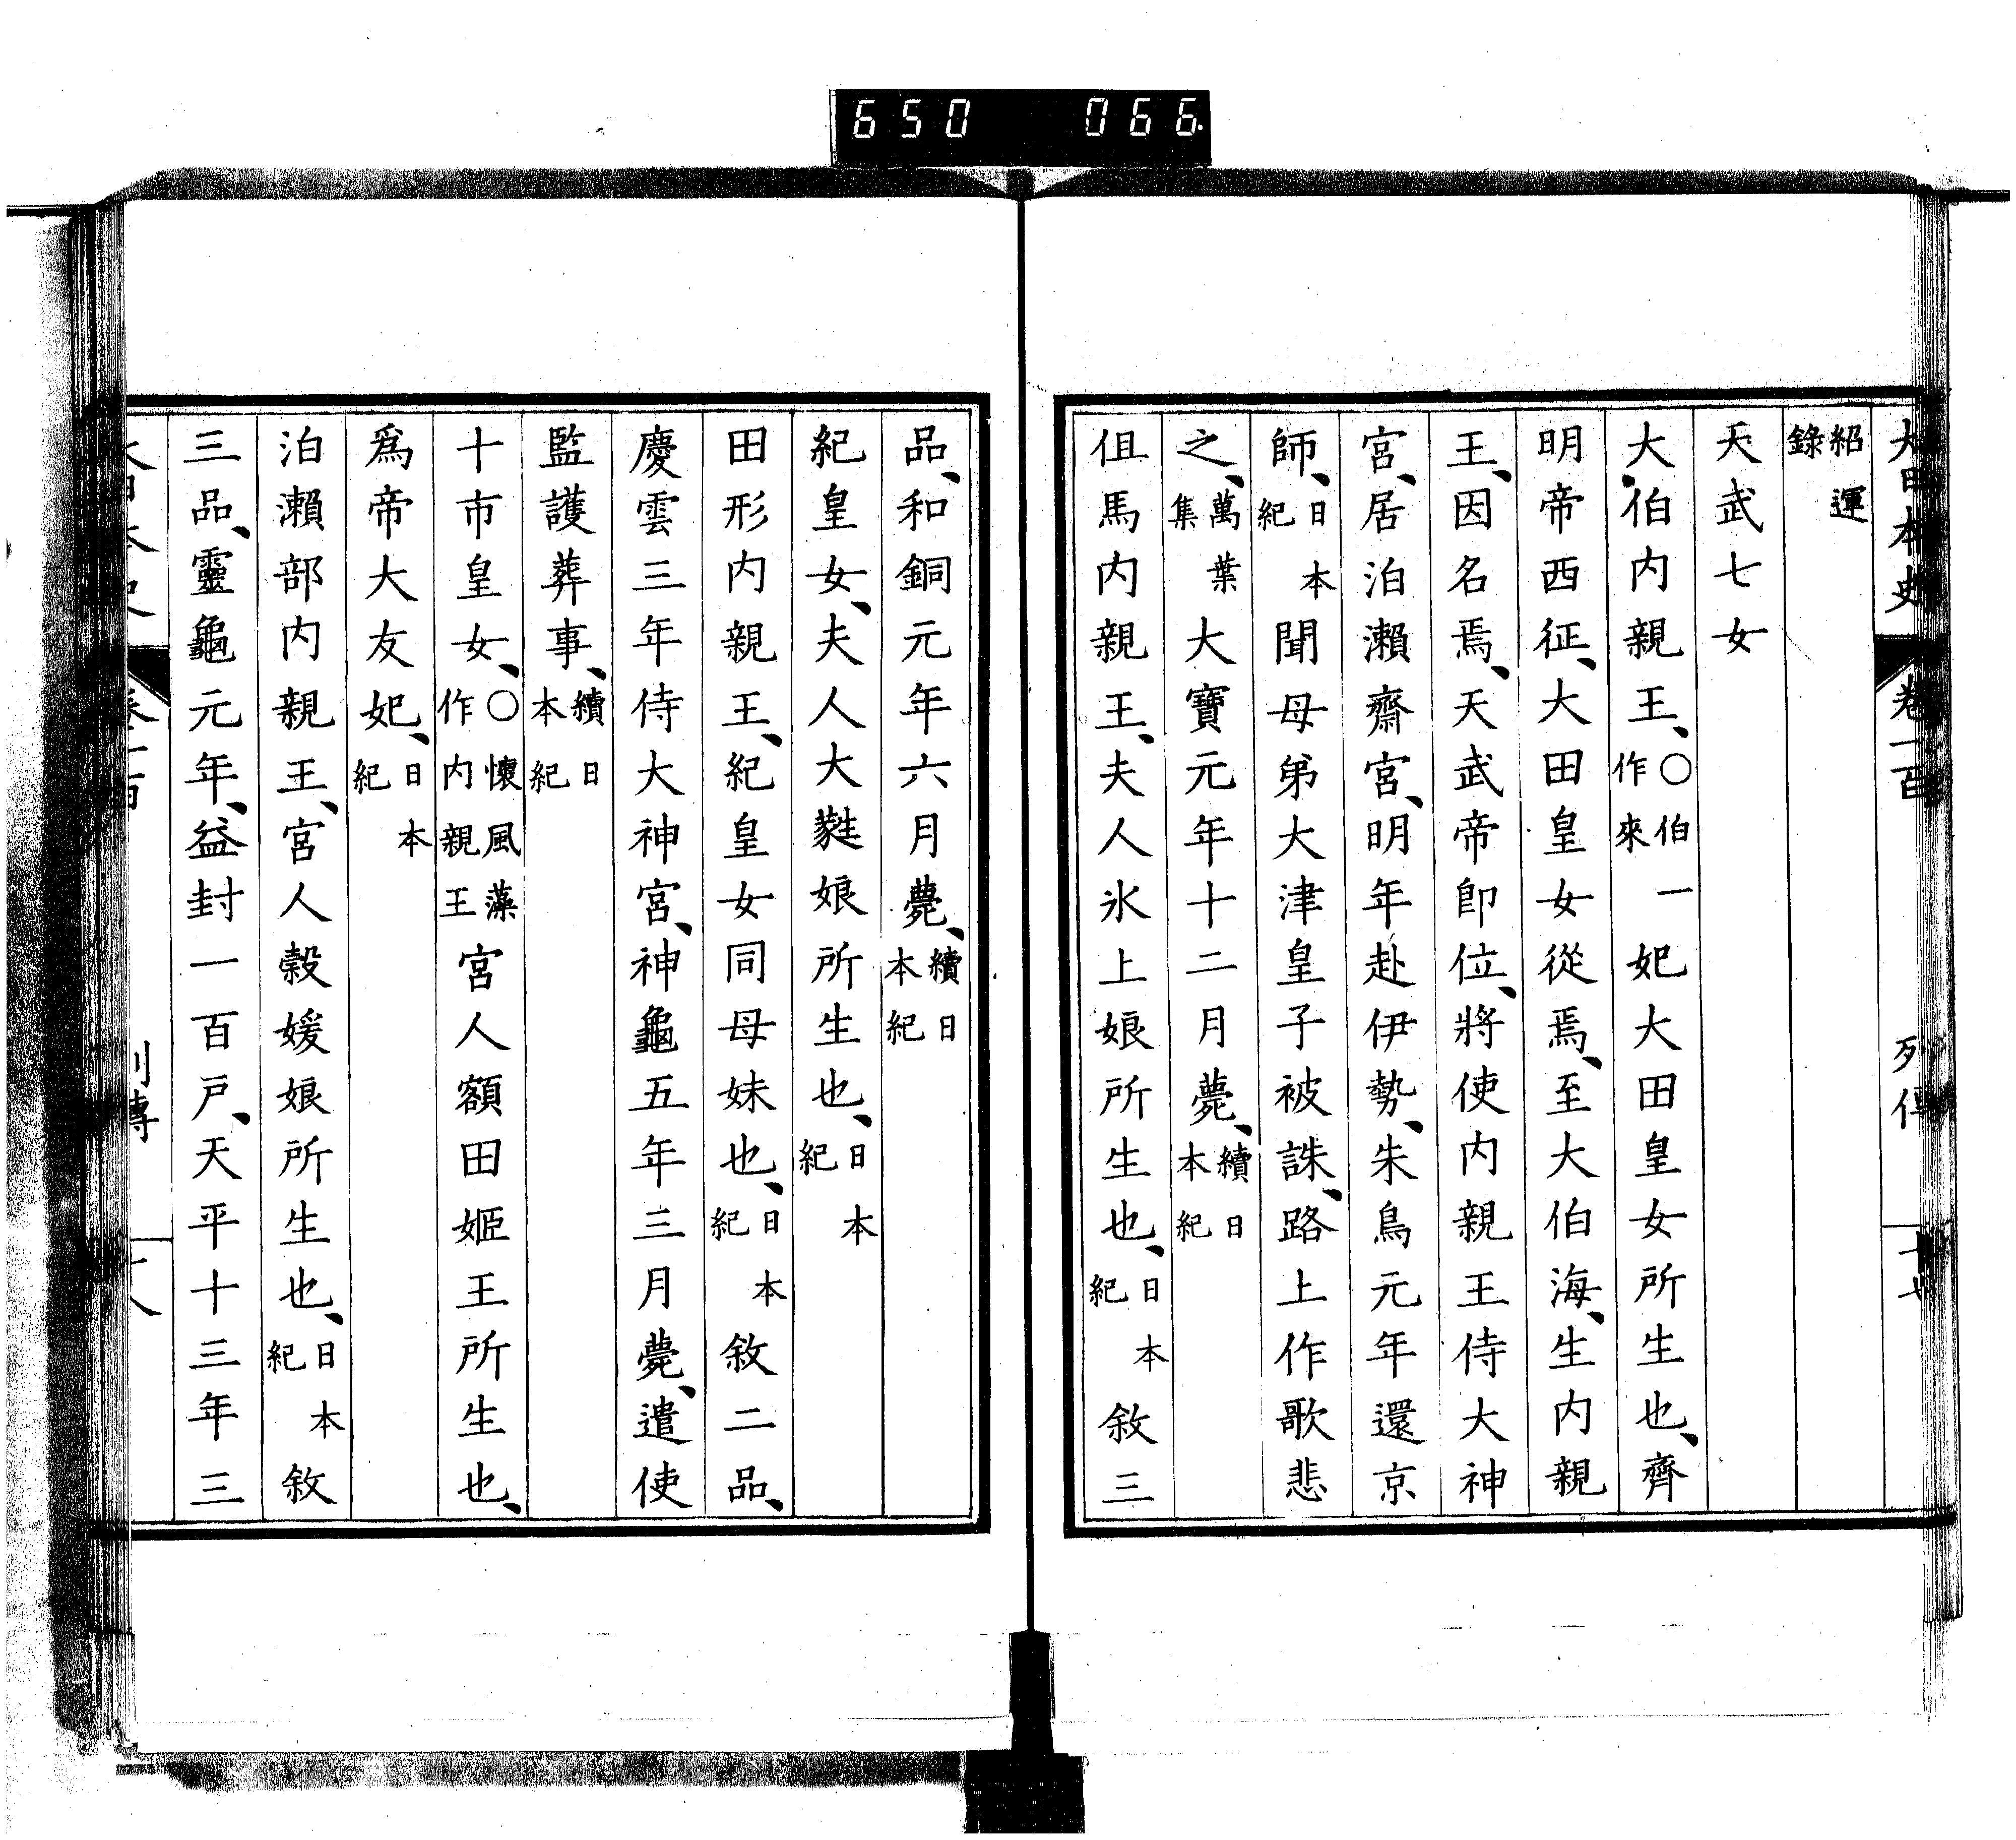 650 066
大日本史 卷一百 列傳 十七
紹運錄
天武七女
大伯內親王、○伯一作來妃大田皇女所生也、齊
明帝西征、大田皇女從焉、至大伯海、生內親
王、因名焉、天武帝卽位、將使內親王侍大神
宮、居泊瀨齋宮、明年赴伊勢、朱鳥元年還京
師、日本紀聞母弟大津皇子被誅、路上作歌悲
之、萬葉集大寶元年十二月薨、續日本紀
但馬內親王、夫人氷上娘所生也、日本紀敘三
品、和銅元年六月薨、續日本紀
紀皇女、夫人大蕤娘所生也、日本紀
田形內親王、紀皇女同母妹也、日本紀敘二品、
慶雲三年侍大神宮、神龜五年三月薨、遣使
監護葬事、續日本紀
十市皇女、○懷風藻作內親王宮人額田姬王所生也、
爲帝大友妃、日本紀
泊瀨部內親王、宮人㯋媛娘所生也、日本紀敘
三品、靈龜元年、益封一百戶、天平十三年三
大日本史 卷一百 列傳 十八